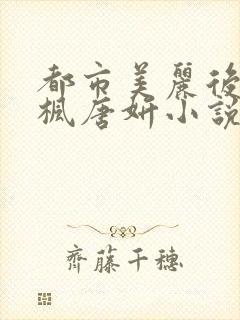 都市美麗後
楓唐妍小説
齊藤千穗